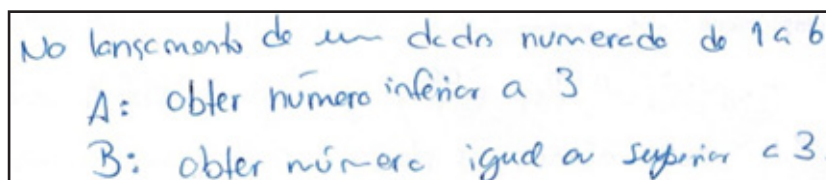 No lançamento de um dado numerado de 1 a 6
A: obter número inferior a 3
B: obter número igual ou superior a 3.